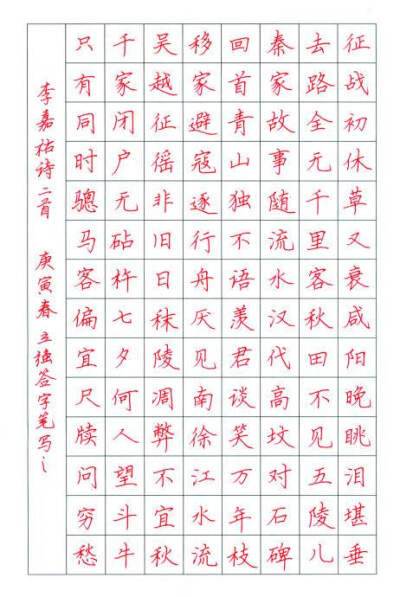 征战初休草又衰咸阳晚眺泪堪垂
去路全无千里客秋田不见五陵儿
秦家故事随流水汉代高坟对石碑
回首青山独不语羡君谈笑万年枝
移家避寇逐行舟厌见南徐江水流
吴越征徭非旧日秣陵凋弊不宜秋
千家闭户无砧杵七夕何人望斗牛
只有同时骢马客偏宜尺牍问穷愁
李嘉祐诗二首 庚寅春立强签字笔写之